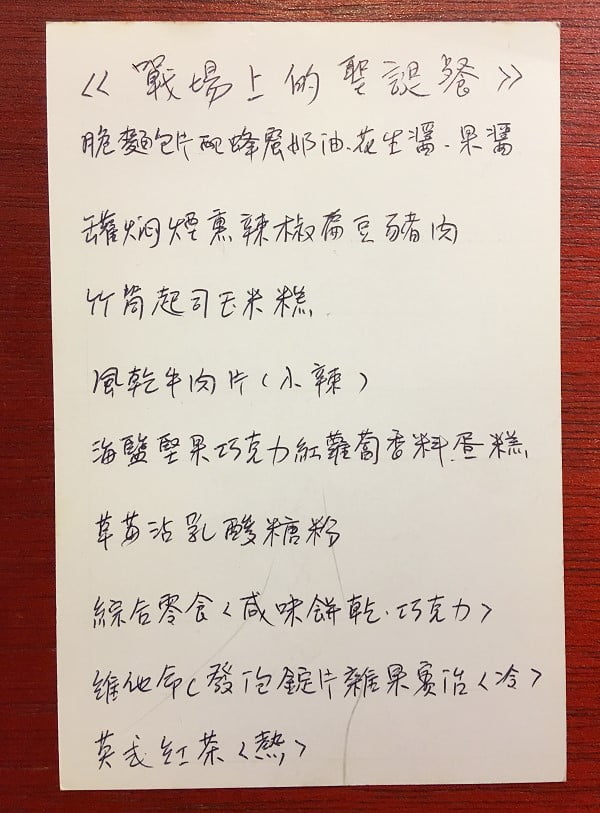 《戰場上的聖誕餐》
脆麵包片配蜂蜜奶油、花生醬、果醬
罐燜煙熏辣椒扁豆豬肉
竹筒起司玉米糕
風乾牛肉片（小辣）
海鹽堅果巧克力紅蘿蔔香料蛋糕
草莓沾乳酸糖粉
綜合零食〈咸味餅乾、巧克力〉
維他命C發泡錠片雜果賓治〈冷〉
英式紅茶〈熱〉